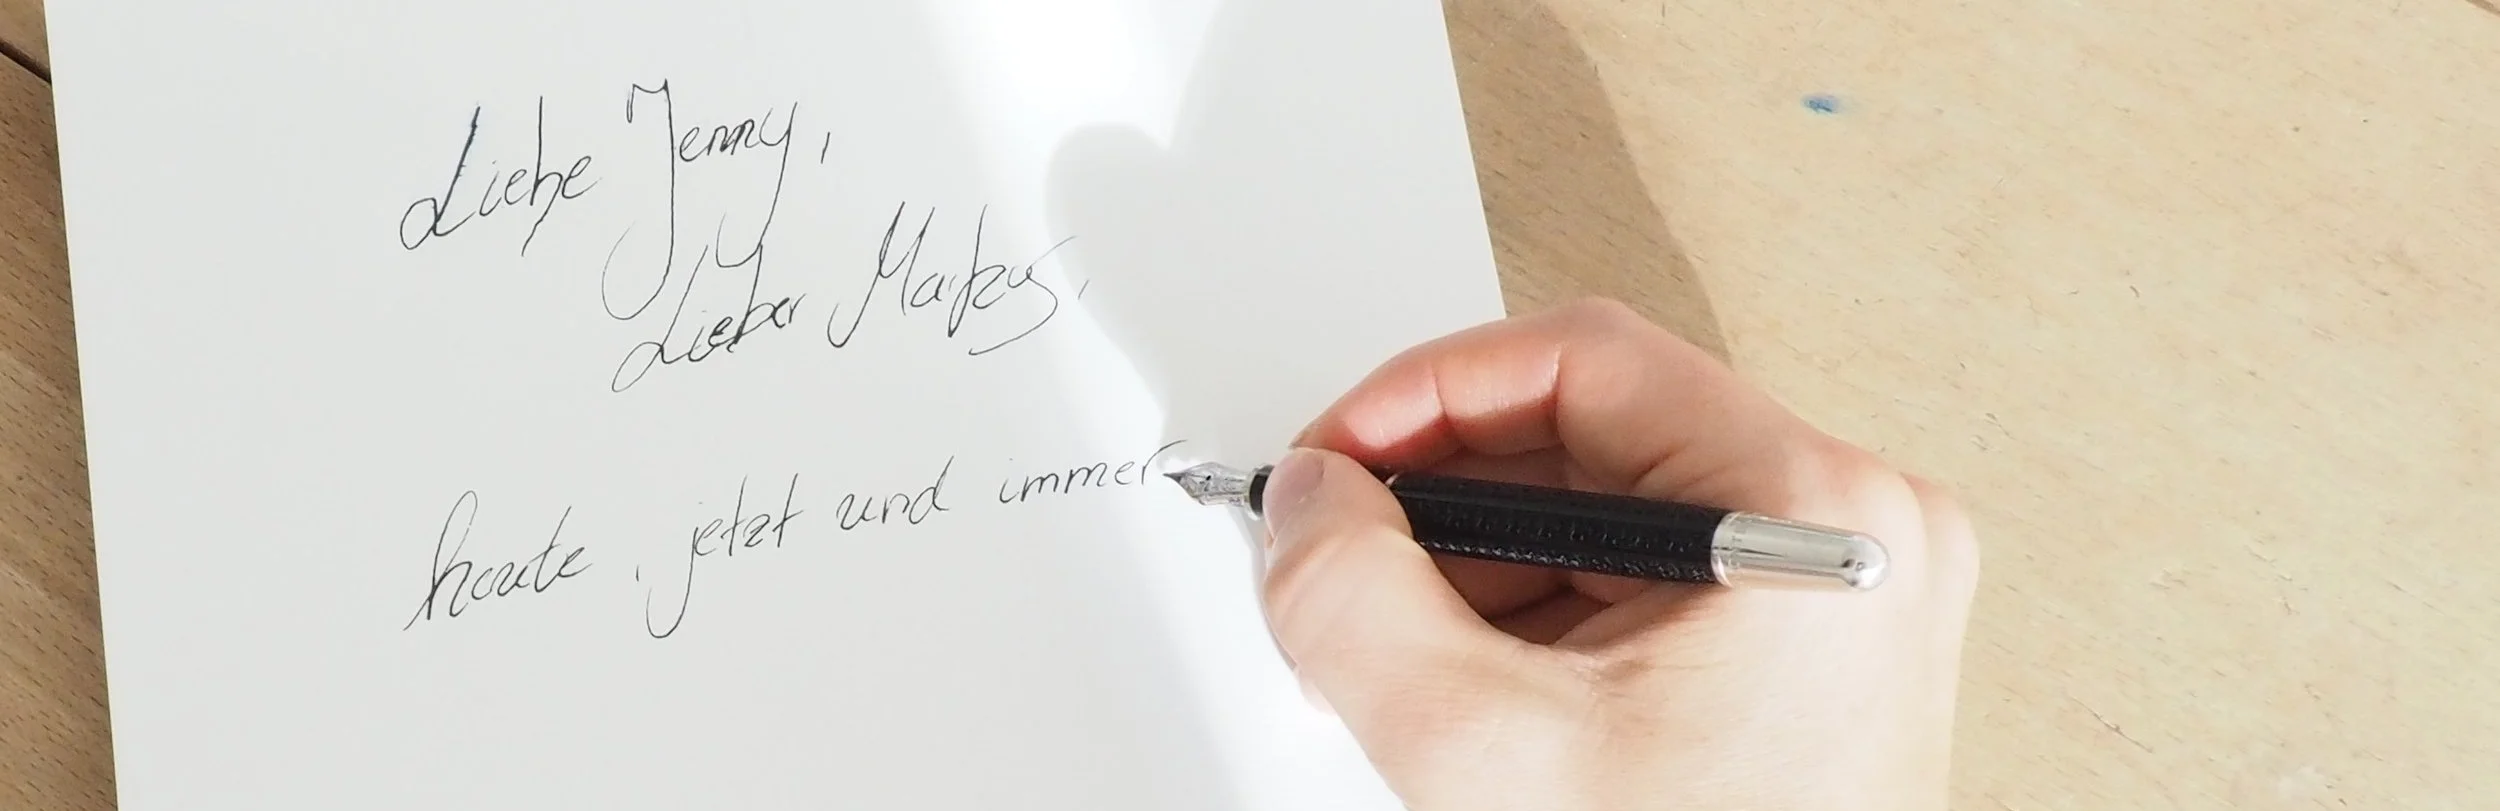 Liebe Jenny,
Lieber Markus,
heute, jetzt und immer